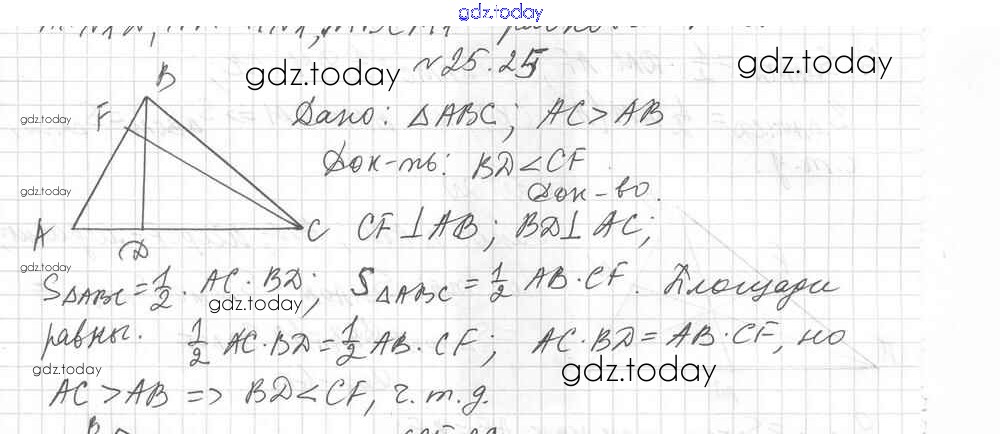 gdz.today
№25.25
gdz.today
gdz.today
B
F
gdz.today
Дано: △ABC; AC > AB
Док-ть: BD < CF
gdz.today
Док-во.
A
D
C
CF ⊥ AB; BD ⊥ AC;
gdz.today
S△ABC = 1/2 · AC · BD; S△ABC = 1/2 AB · CF. Площади
gdz.today
равны. 1/2 AC · BD = 1/2 AB · CF; AC · BD = AB · CF, но
gdz.today
gdz.today
AC > AB => BD < CF, ч.т.д.
B